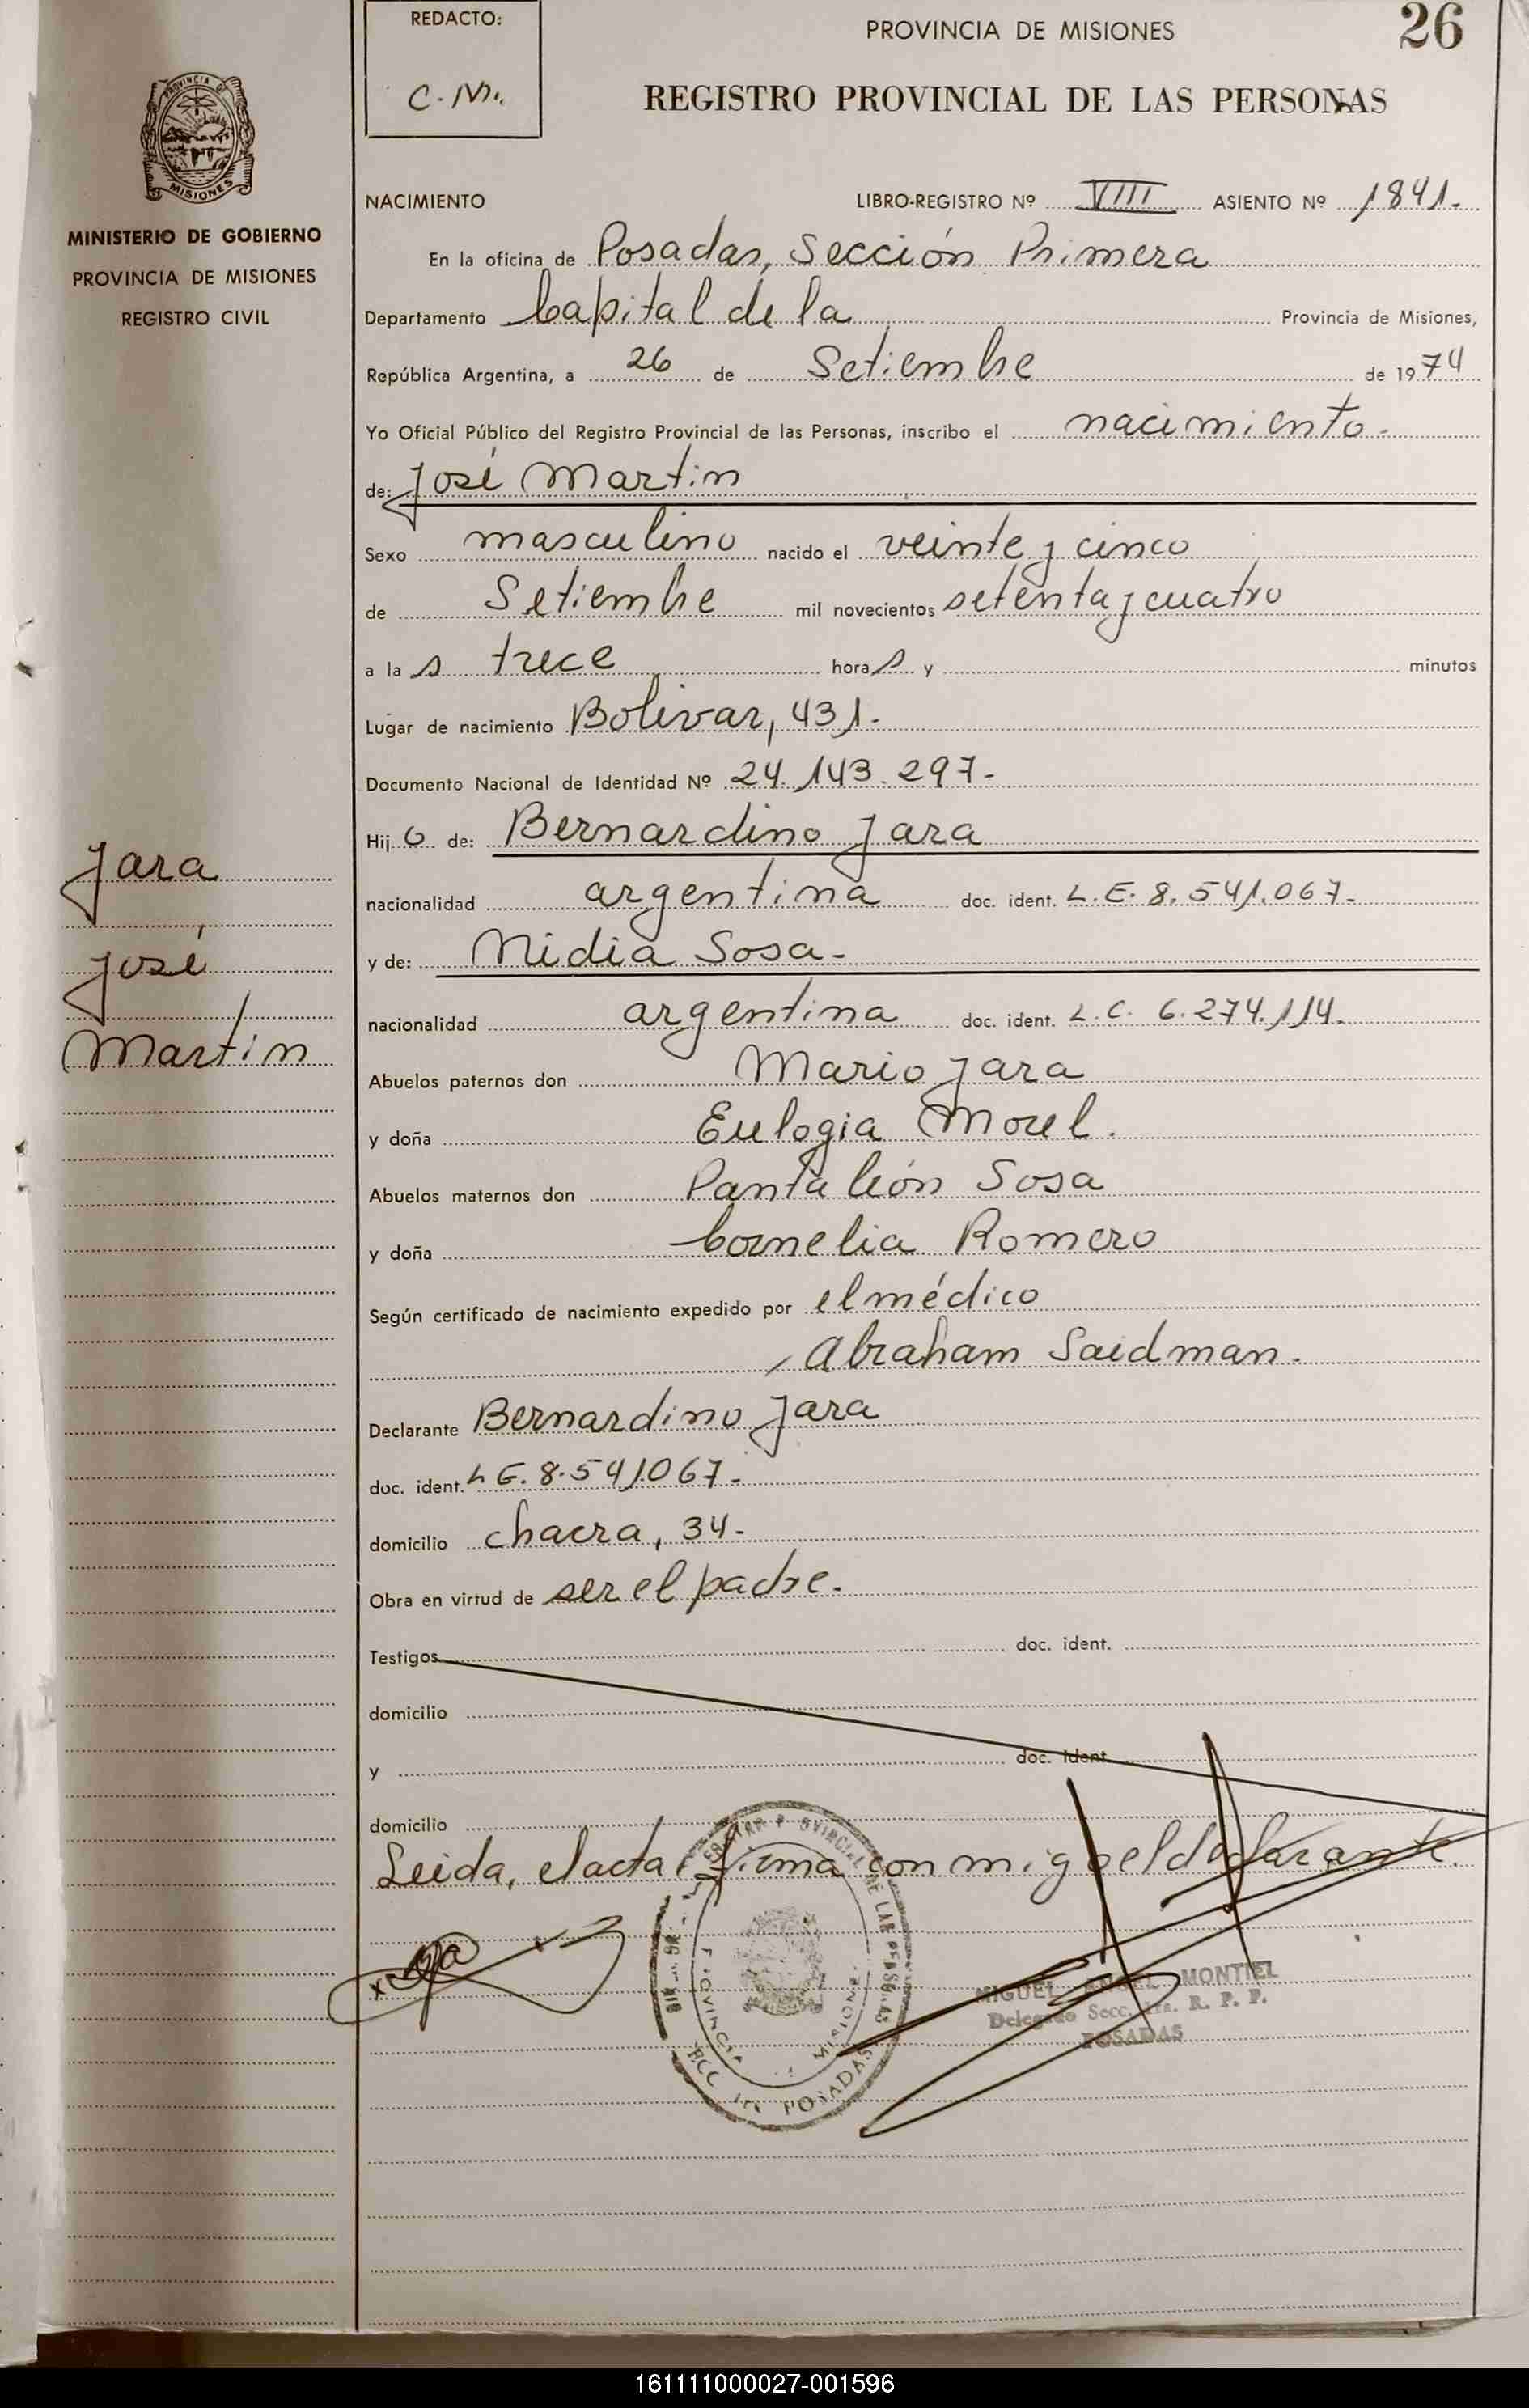 REDACTO:
C.M.
PROVINCIA DE MISIONES
26
REGISTRO PROVINCIAL DE LAS PERSONAS
PROVINCIA DE
MISIONES
MINISTERIO DE GOBIERNO
PROVINCIA DE MISIONES
REGISTRO CIVIL
NACIMIENTO LIBRO-REGISTRO Nº VIII ASIENTO Nº 1841.
En la oficina de Posadas, Sección Primera
Departamento Capital de la Provincia de Misiones,
República Argentina, a 26 de Setiembre de 1974
Yo Oficial Público del Registro Provincial de las Personas, inscribo el nacimiento.
de: José Martin
Sexo masculino nacido el veinte y cinco
de Setiembre mil novecientos setenta y cuatro
a la s trece hora s y minutos
Lugar de nacimiento Bolivar, 431.
Documento Nacional de Identidad Nº 24.143.297-
Hij o de: Bernardino Jara
nacionalidad argentina doc. ident. L.E. 8.541.067-
y de: Nidia Sosa-
nacionalidad argentina doc. ident. L.C. 6.274.114.
Abuelos paternos don Mario Jara
y doña Eulogia Morel.
Abuelos maternos don Pantaleón Sosa
y doña Cornelia Romero
Según certificado de nacimiento expedido por el médico
Abraham Saidman.
Declarante Bernardino Jara
doc. ident. L.E. 8.541067-
domicilio chacra, 34-
Obra en virtud de ser el padre.
Testigos doc. ident.
domicilio
y doc. ident.
domicilio
Leida, el acta firma con migo el declarante.
Jara
José
Martin
MIGUEL ANGEL MONTIEL
Delegado Secc. 1ra. R. P. P.
POSADAS
161111000027-001596